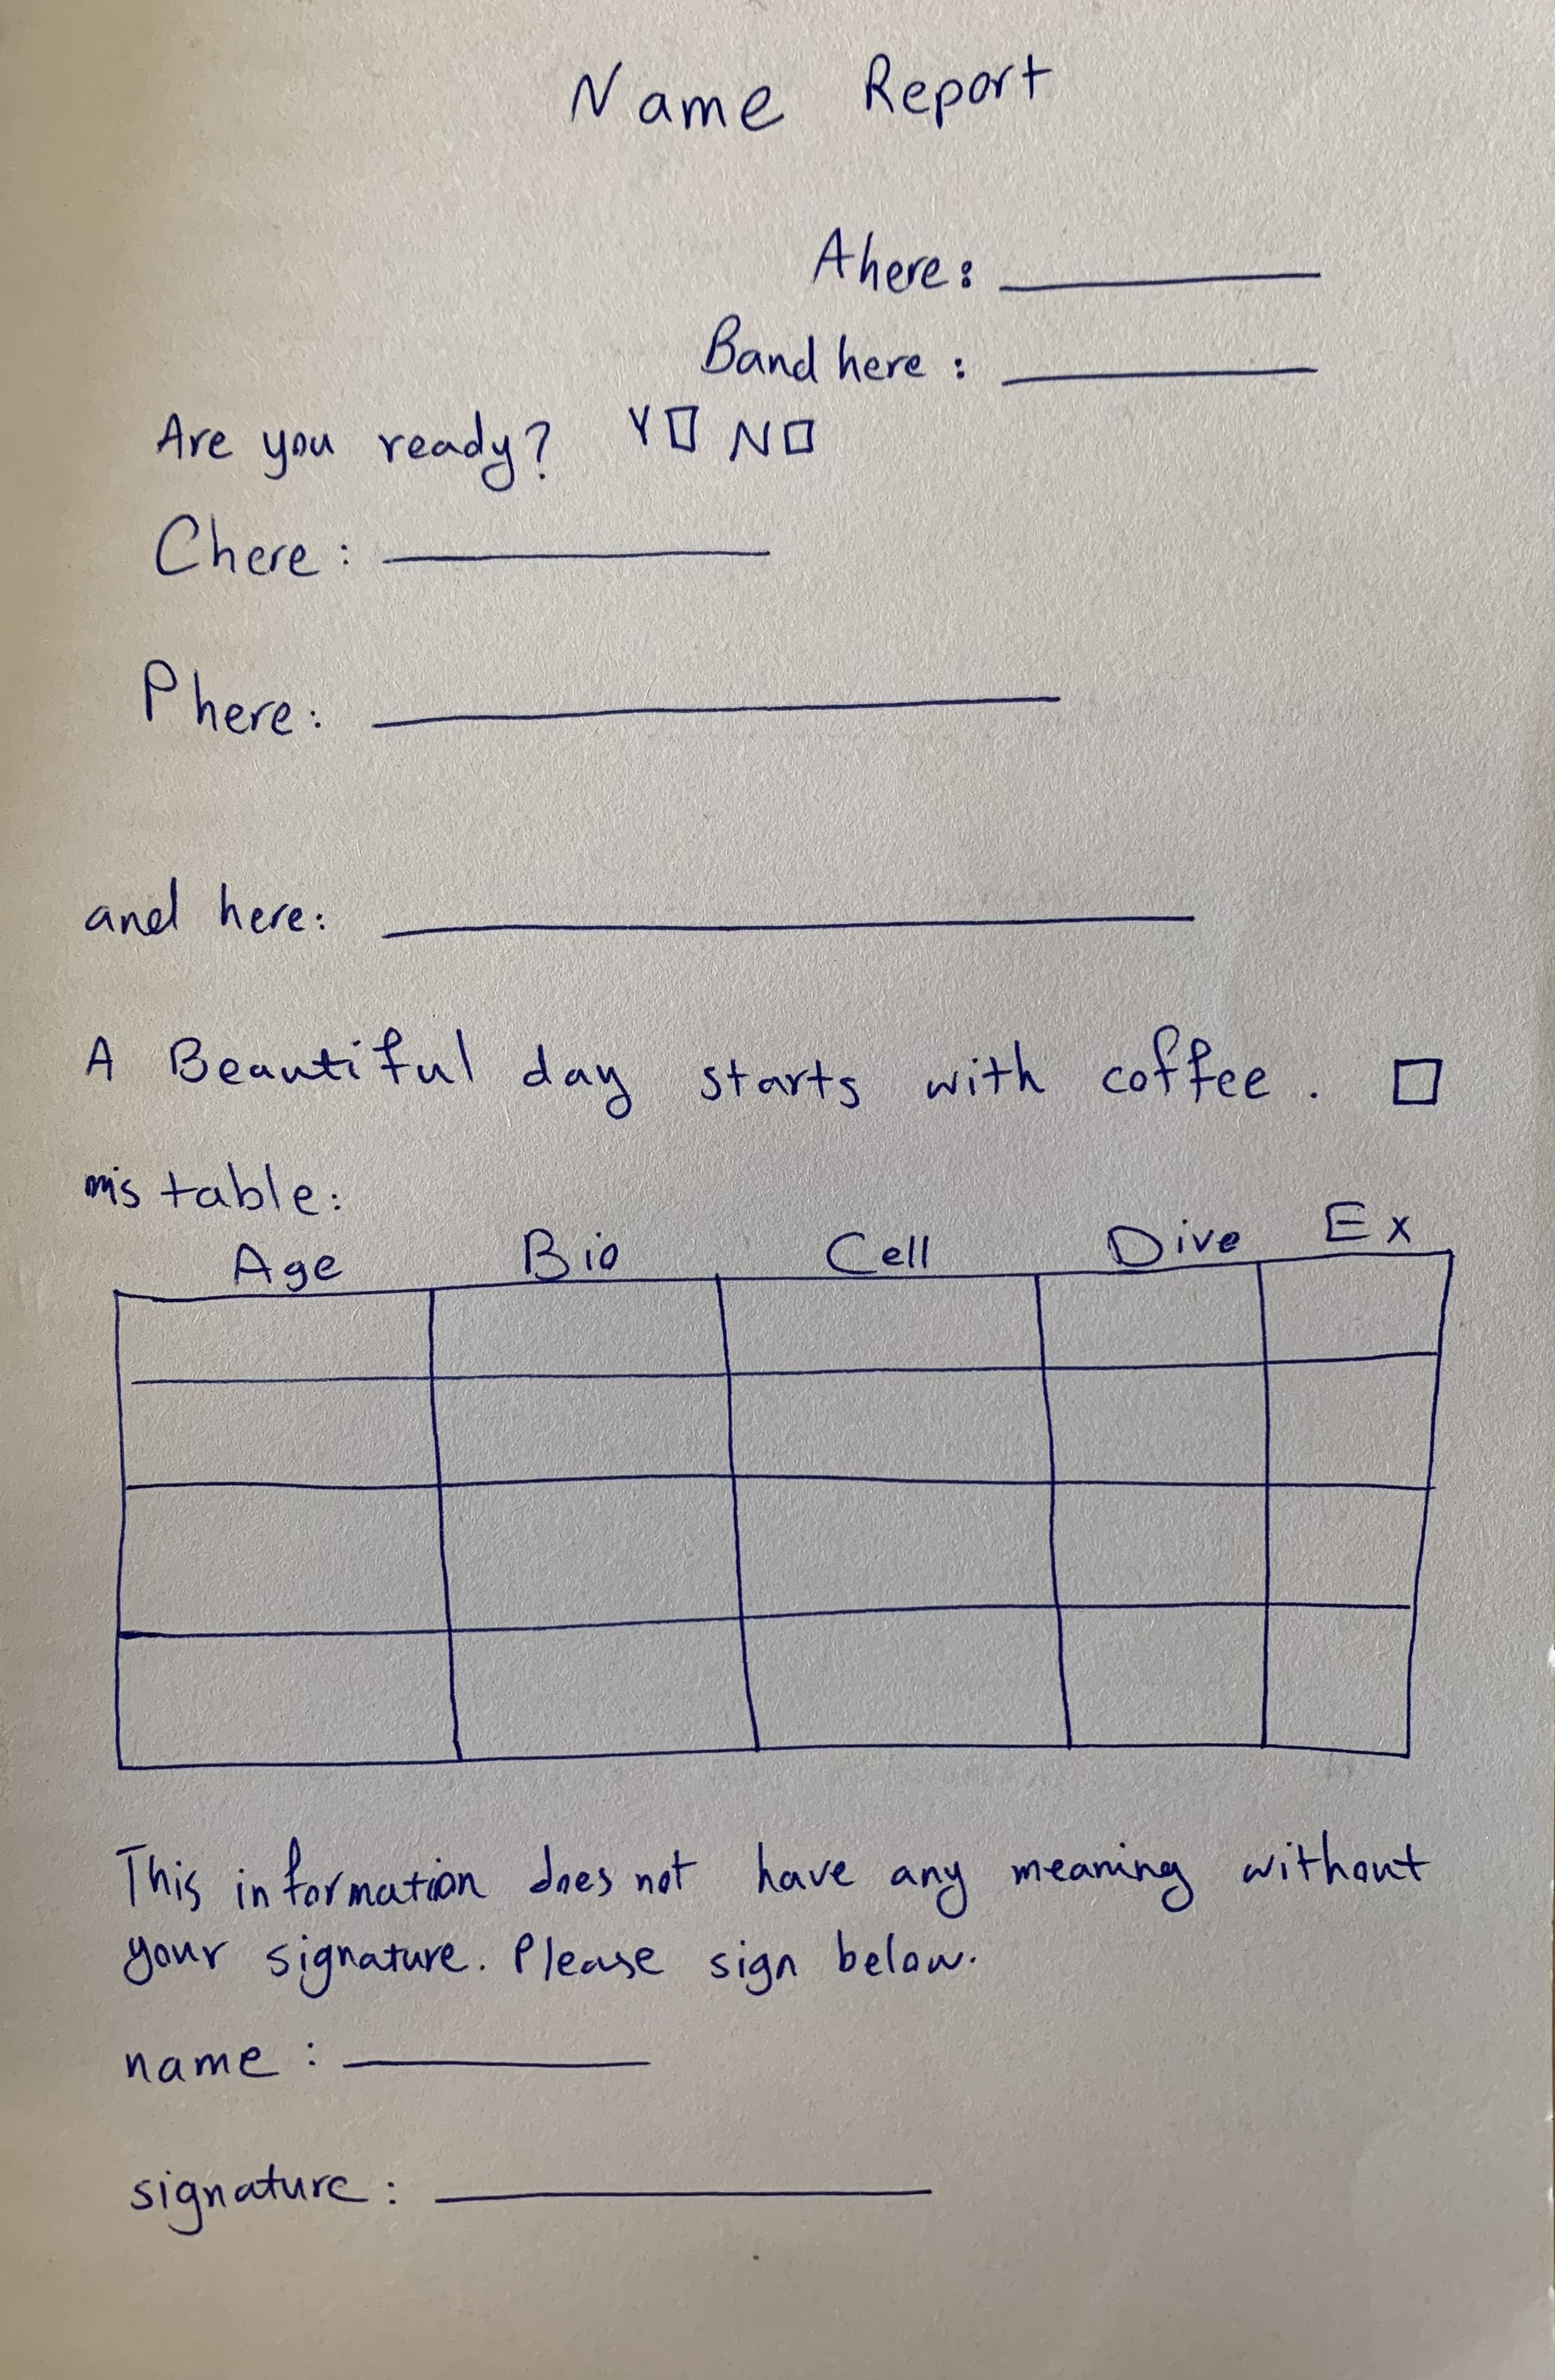 Name Report
A here: 
Band here :
Are you ready? Y N
Chere :
Phere:
and here:
A Beautiful day starts with coffee .
mis table:
Age Bio Cell Dive Ex
This information does not have any meaning without
your signature. Please sign below.
name :
signature :